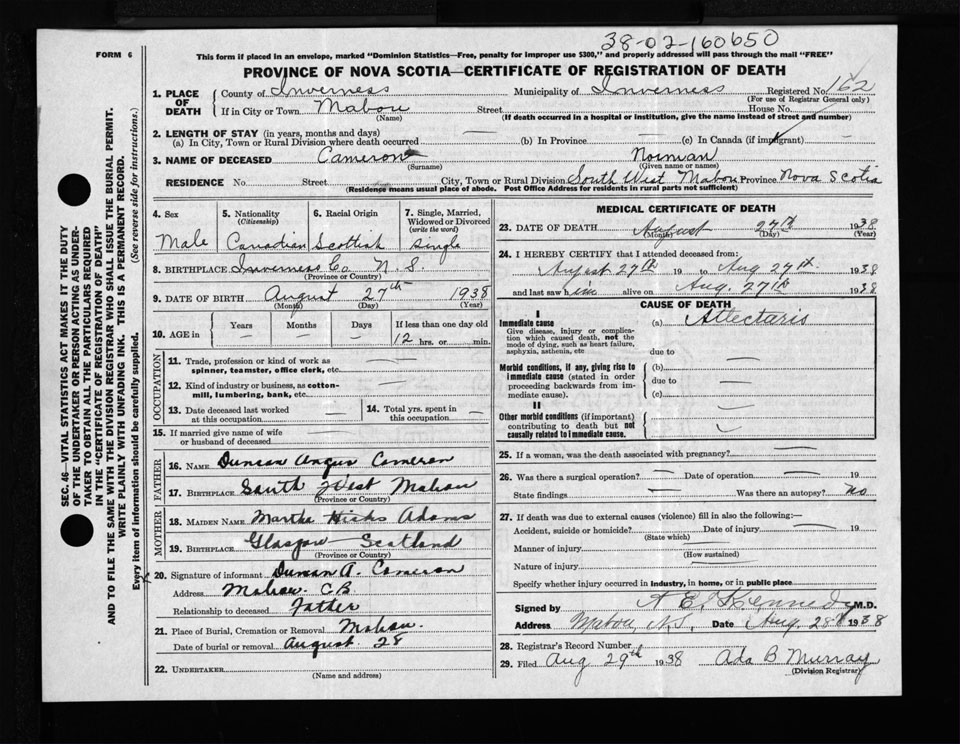 38-02-160650
FORM 6
This form if placed in an envelope, marked "Dominion Statistics—Free, penalty for improper use $300," and properly addressed will pass through the mail "FREE"
PROVINCE OF NOVA SCOTIA—CERTIFICATE OF REGISTRATION OF DEATH
1. PLACE OF DEATH County of Inverness Municipality of Inverness Registered No. 162
(For use of Registrar General only)
If in City or Town Mabou Street House No.
(Name) (If death occurred in a hospital or institution, give the name instead of street and number)
2. LENGTH OF STAY (in years, months and days)
(a) In City, Town or Rural Division where death occurred — (b) In Province — (c) In Canada (if immigrant)
3. NAME OF DECEASED Cameron Norman
(Surname) (Given name or names)
RESIDENCE No. Street City, Town or Rural Division South West Mabou Province Nova Scotia
(Residence means usual place of abode. Post Office Address for residents in rural parts not sufficient)
4. Sex 5. Nationality (Citizenship) 6. Racial Origin 7. Single, Married, Widowed or Divorced (write the word)
Male Canadian Scottish Single
8. BIRTHPLACE Inverness Co N.S.
(Province or Country)
9. DATE OF BIRTH August 27th 1938
(Month) (Day) (Year)
10. AGE in Years Months Days If less than one day old
— — — 12 hrs. or min.
OCCUPATION
11. Trade, profession or kind of work as spinner, teamster, office clerk, etc. —
12. Kind of industry or business, as cotton-mill, lumbering, bank, etc. —
13. Date deceased last worked at this occupation — 14. Total yrs. spent in this occupation —
15. If married give name of wife or husband of deceased —
FATHER
16. NAME Duncan Angus Cameron
17. BIRTHPLACE South West Mabou
(Province or Country)
MOTHER
18. MAIDEN NAME Martha Hicks Adams
19. BIRTHPLACE Glasgow Scotland
(Province or Country)
20. Signature of informant Duncan A. Cameron
Address Mabou C.B.
Relationship to deceased Father
21. Place of Burial, Cremation or Removal Mabou.
Date of burial or removal August 28
22. UNDERTAKER
(Name and address)
MEDICAL CERTIFICATE OF DEATH
23. DATE OF DEATH August 27th 1938
(Month) (Day) (Year)
24. I HEREBY CERTIFY that I attended deceased from:
August 27th 19 to Aug 27th 1938
and last saw him alive on Aug. 27th 1938
CAUSE OF DEATH
I
Immediate cause (a) Atlectaris
Give disease, injury or complication which caused death, not the mode of dying, such as heart failure, asphyxia, asthenia, etc due to —
Morbid conditions, if any, giving rise to immediate cause (stated in order proceeding backwards from immediate cause). (b) — due to — (c) —
II
Other morbid conditions (if important) contributing to death but not causally related to immediate cause.
25. If a woman, was the death associated with pregnancy? —
26. Was there a surgical operation? — Date of operation — 19
State findings — Was there an autopsy? No
27. If death was due to external causes (violence) fill in also the following:—
Accident, suicide or homicide? Date of injury — 19
(State which)
Manner of injury
(How sustained)
Nature of injury
Specify whether injury occurred in industry, in home, or in public place
Signed by A E. Kennedy M.D.
Address Mabou, N.S. Date Aug. 28th 1938
28. Registrar's Record Number
29. Filed Aug 29th 1938 Ada B Murray
(Division Registrar)
SEC. 46—VITAL STATISTICS ACT MAKES IT THE DUTY
OF THE UNDERTAKER OR PERSON ACTING AS UNDER-
TAKER TO OBTAIN ALL THE PARTICULARS REQUIRED
IN THE "CERTIFICATE OF REGISTRATION OF DEATH"
AND TO FILE THE SAME WITH THE DIVISION REGISTRAR WHO SHALL ISSUE THE BURIAL PERMIT.
WRITE PLAINLY WITH UNFADING INK. THIS IS A PERMANENT RECORD.
Every item of information should be carefully supplied. (See reverse side for instructions.)